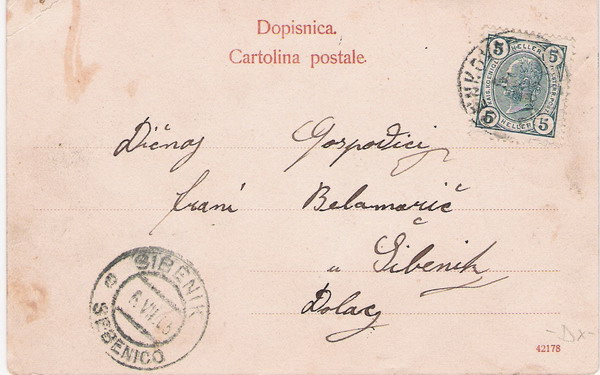 Dopisnica.
Cartolina postale.
5 HELLER 5
5 HELLER 5
Dičnoj Gospođici
Frani Belamarić
u Šibenik
Dolac
ŠIBENIK
6 VII
SEBENICO
e
42178
-Dx-